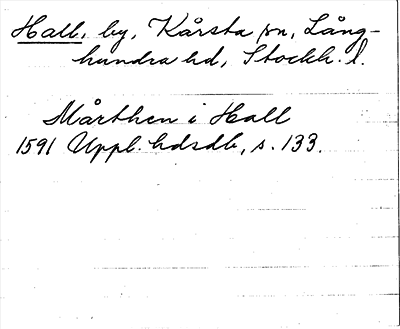 Hall, by, Kårsta sn, Lång-
hundra hd, Stockh. l.
Mårthen i Hall
1591 Uppl. hdsdb, s. 133.